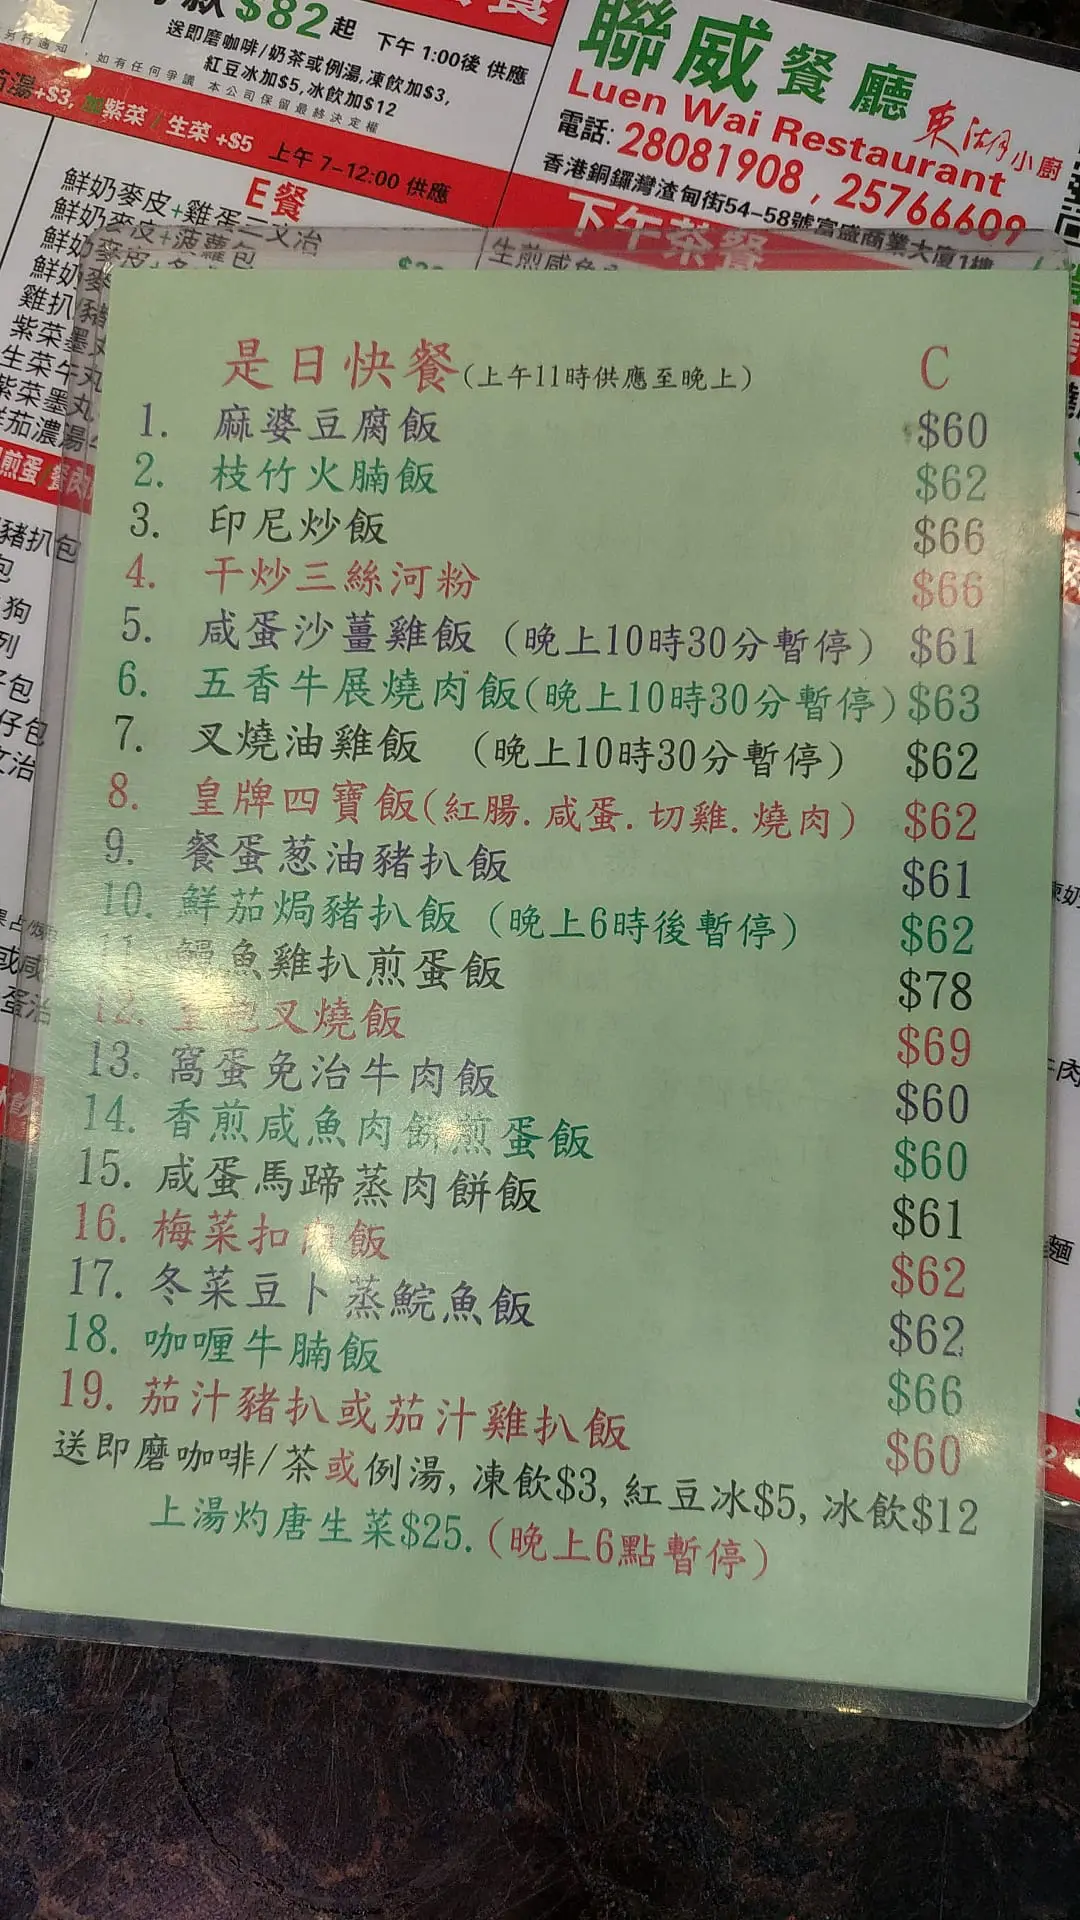 $82起 下午 1:00後 供應
送即磨咖啡/奶茶或例湯,凍飲加$3,
紅豆冰加$5,冰飲加$12
如有任何爭議 本公司保留最終決定權
另行通知
湯+$3, 加紫菜/生菜 +$5 上午 7-12:00 供應
聯威餐廳
Luen Wai Restaurant
小廚
電話: 28081908 , 25766609
香港銅鑼灣渣甸街54-58號富盛商業大廈1樓
下午茶餐
E餐
鮮奶麥皮+雞蛋三文治
鮮奶麥皮+菠蘿包
鮮奶麥皮+
鮮奶麥
雞扒/豬
紫菜墨丸
生菜牛丸
紫菜墨丸
鮮茄濃湯
煎蛋 餐肉
豬扒包
包
狗
列
仔包
文治
是日快餐(上午11時供應至晚上) C
1. 麻婆豆腐飯 $60
2. 枝竹火腩飯 $62
3. 印尼炒飯 $66
4. 干炒三絲河粉 $66
5. 咸蛋沙薑雞飯 (晚上10時30分暫停) $61
6. 五香牛展燒肉飯(晚上10時30分暫停) $63
7. 叉燒油雞飯 (晚上10時30分暫停) $62
8. 皇牌四寶飯(紅腸.咸蛋.切雞.燒肉) $62
9. 餐蛋葱油豬扒飯 $61
10. 鮮茄焗豬扒飯 (晚上6時後暫停) $62
11. 鰻魚雞扒煎蛋飯 $78
12. 叉燒飯 $69
13. 窩蛋免治牛肉飯 $60
14. 香煎咸魚肉餅煎蛋飯 $60
15. 咸蛋馬蹄蒸肉餅飯 $61
16. 梅菜扣肉飯 $62
17. 冬菜豆卜蒸鯇魚飯 $62
18. 咖喱牛腩飯 $66
19. 茄汁豬扒或茄汁雞扒飯 $60
送即磨咖啡/茶或例湯,凍飲$3,紅豆冰$5,冰飲$12
上湯灼唐生菜$25.(晚上6點暫停)